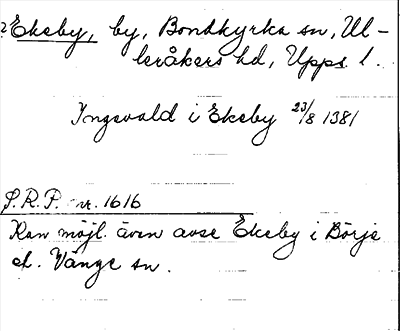 ? Ekeby, by, Bondkyrka sn, Ul-
leråkers hd, Upps l.
Yngevald i Ekeby 23/8 1381
S.R.P. nr. 1616
Kan möjl. även avse Ekeby i Börje
el. Vänge sn.